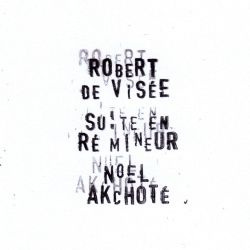 ROBERT
DE VISÉE
SUITE EN
RÉ MINEUR
NOEL
AKCHOTÉ